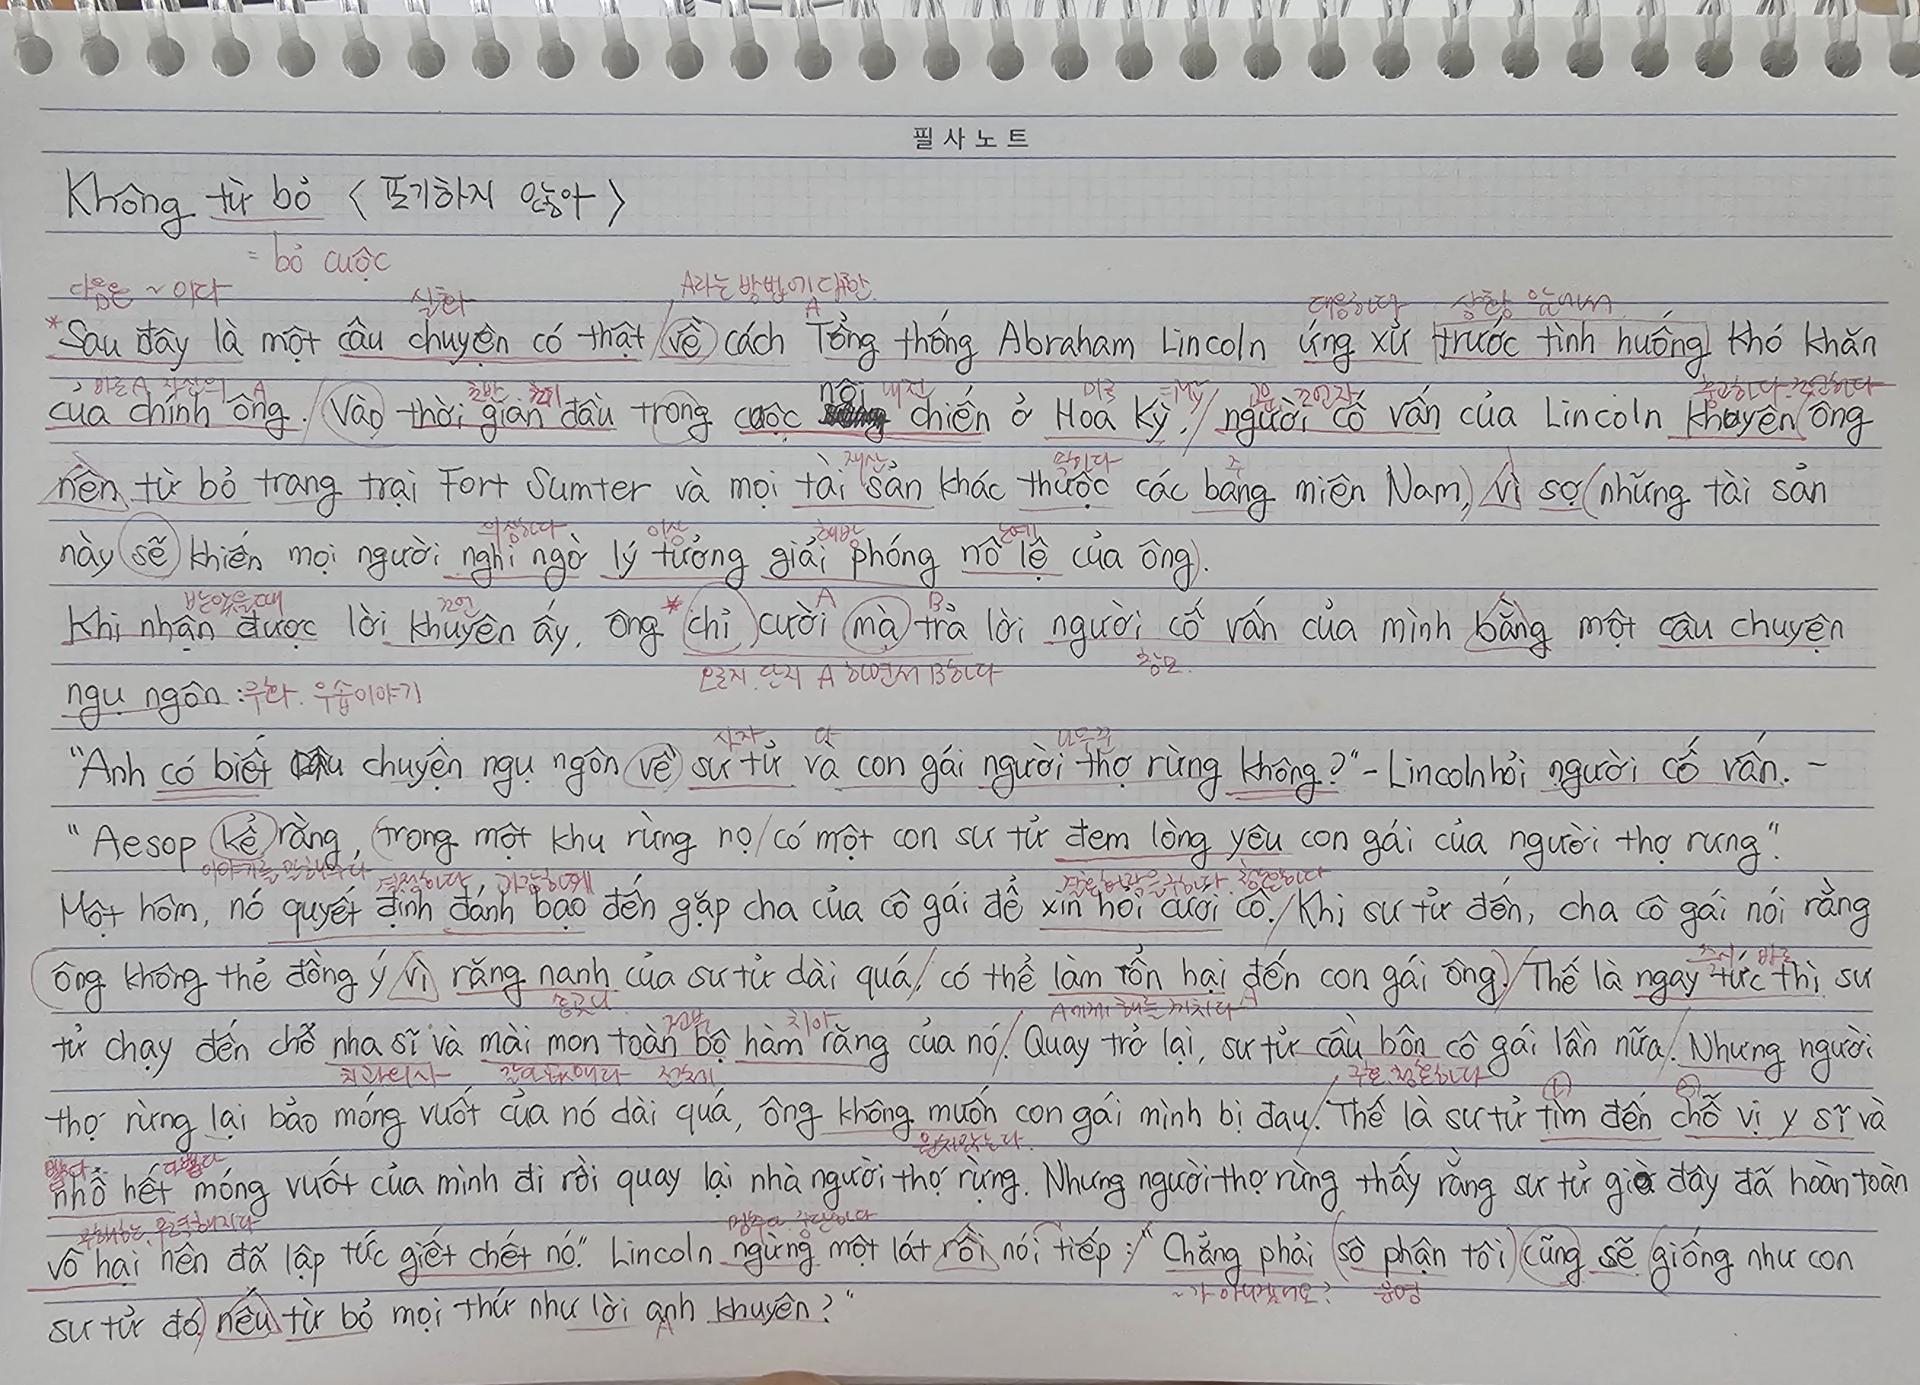 필사노트
Không từ bỏ <포기하지 않아>
= bỏ cuộc
다음은 ~ 이다 실화 A라는 방법에 대한 A 대응하다 상황 앞에서
*Sau đây là một câu chuyện có thật/về cách Tổng thống Abraham Lincoln ứng xử trước tình huống khó khăn
바로 A 자신의 A 초반 초기 내전 미국 고문 조언자 충고하다 조언하다
của chính ông./Vào thời gian đầu trong cuộc nội chiến ở Hoa Kỳ,/người cố vấn của Lincoln khuyên ông
재산 속하다 주
nên từ bỏ trang trại Fort Sumter và mọi tài sản khác thuộc các bang miền Nam, vì sợ (những tài sản
의심하다 이상 해방 노예
này sẽ khiến mọi người nghi ngờ lý tưởng giải phóng nô lệ của ông).
받았을때 조언 A B
Khi nhận được lời khuyên ấy, ông *chỉ cười mà trả lời người cố vấn của mình bằng một câu chuyện
오로지. 단지 A 하면서 B하다
ngụ ngôn : 우화. 우습이야기
사자 딸 나무꾼
"Anh có biết câu chuyện ngụ ngôn về sư tử và con gái người thợ rừng không?" - Lincoln hỏi người cố vấn. -
"Aesop kể rằng, (trong một khu rừng nọ/có một con sư tử đem lòng yêu con gái của người thợ rưng".
결정하다 과감하게 청혼하다
Một hôm, nó quyết định đánh bạo đến gặp cha của cô gái để xin hỏi cưới cô./Khi sư tử đến, cha cô gái nói rằng
ông không thể đồng ý vì răng nanh của sư tử dài quá/có thể làm tổn hại đến con gái ông)./Thế là ngay tức thì sư
송곳니 전부 치아 A에게 해를 끼치다
tử chạy đến chỗ nha sĩ và mài mòn toàn bộ hàm răng của nó./Quay trở lại, sư tử cầu hôn cô gái lần nữa./Nhưng người
치과의사 구혼 청혼하다
thợ rừng lại bảo móng vuốt của nó dài quá, ông không muốn con gái mình bị đau./Thế là sư tử tìm đến chỗ vị y sĩ và
원치않는다
nhổ hết móng vuốt của mình đi rồi quay lại nhà người thợ rừng. Nhưng người thợ rừng thấy rằng sư tử giờ đây đã hoàn toàn
vô hại nên đã lập tức giết chết nó." Lincoln ngừng một lát rồi nói tiếp :/"Chẳng phải (số phận tôi) cũng sẽ giống như con
~가 아니겠어요? 운명
sư tử đó) nếu từ bỏ mọi thứ như lời anh khuyên?"